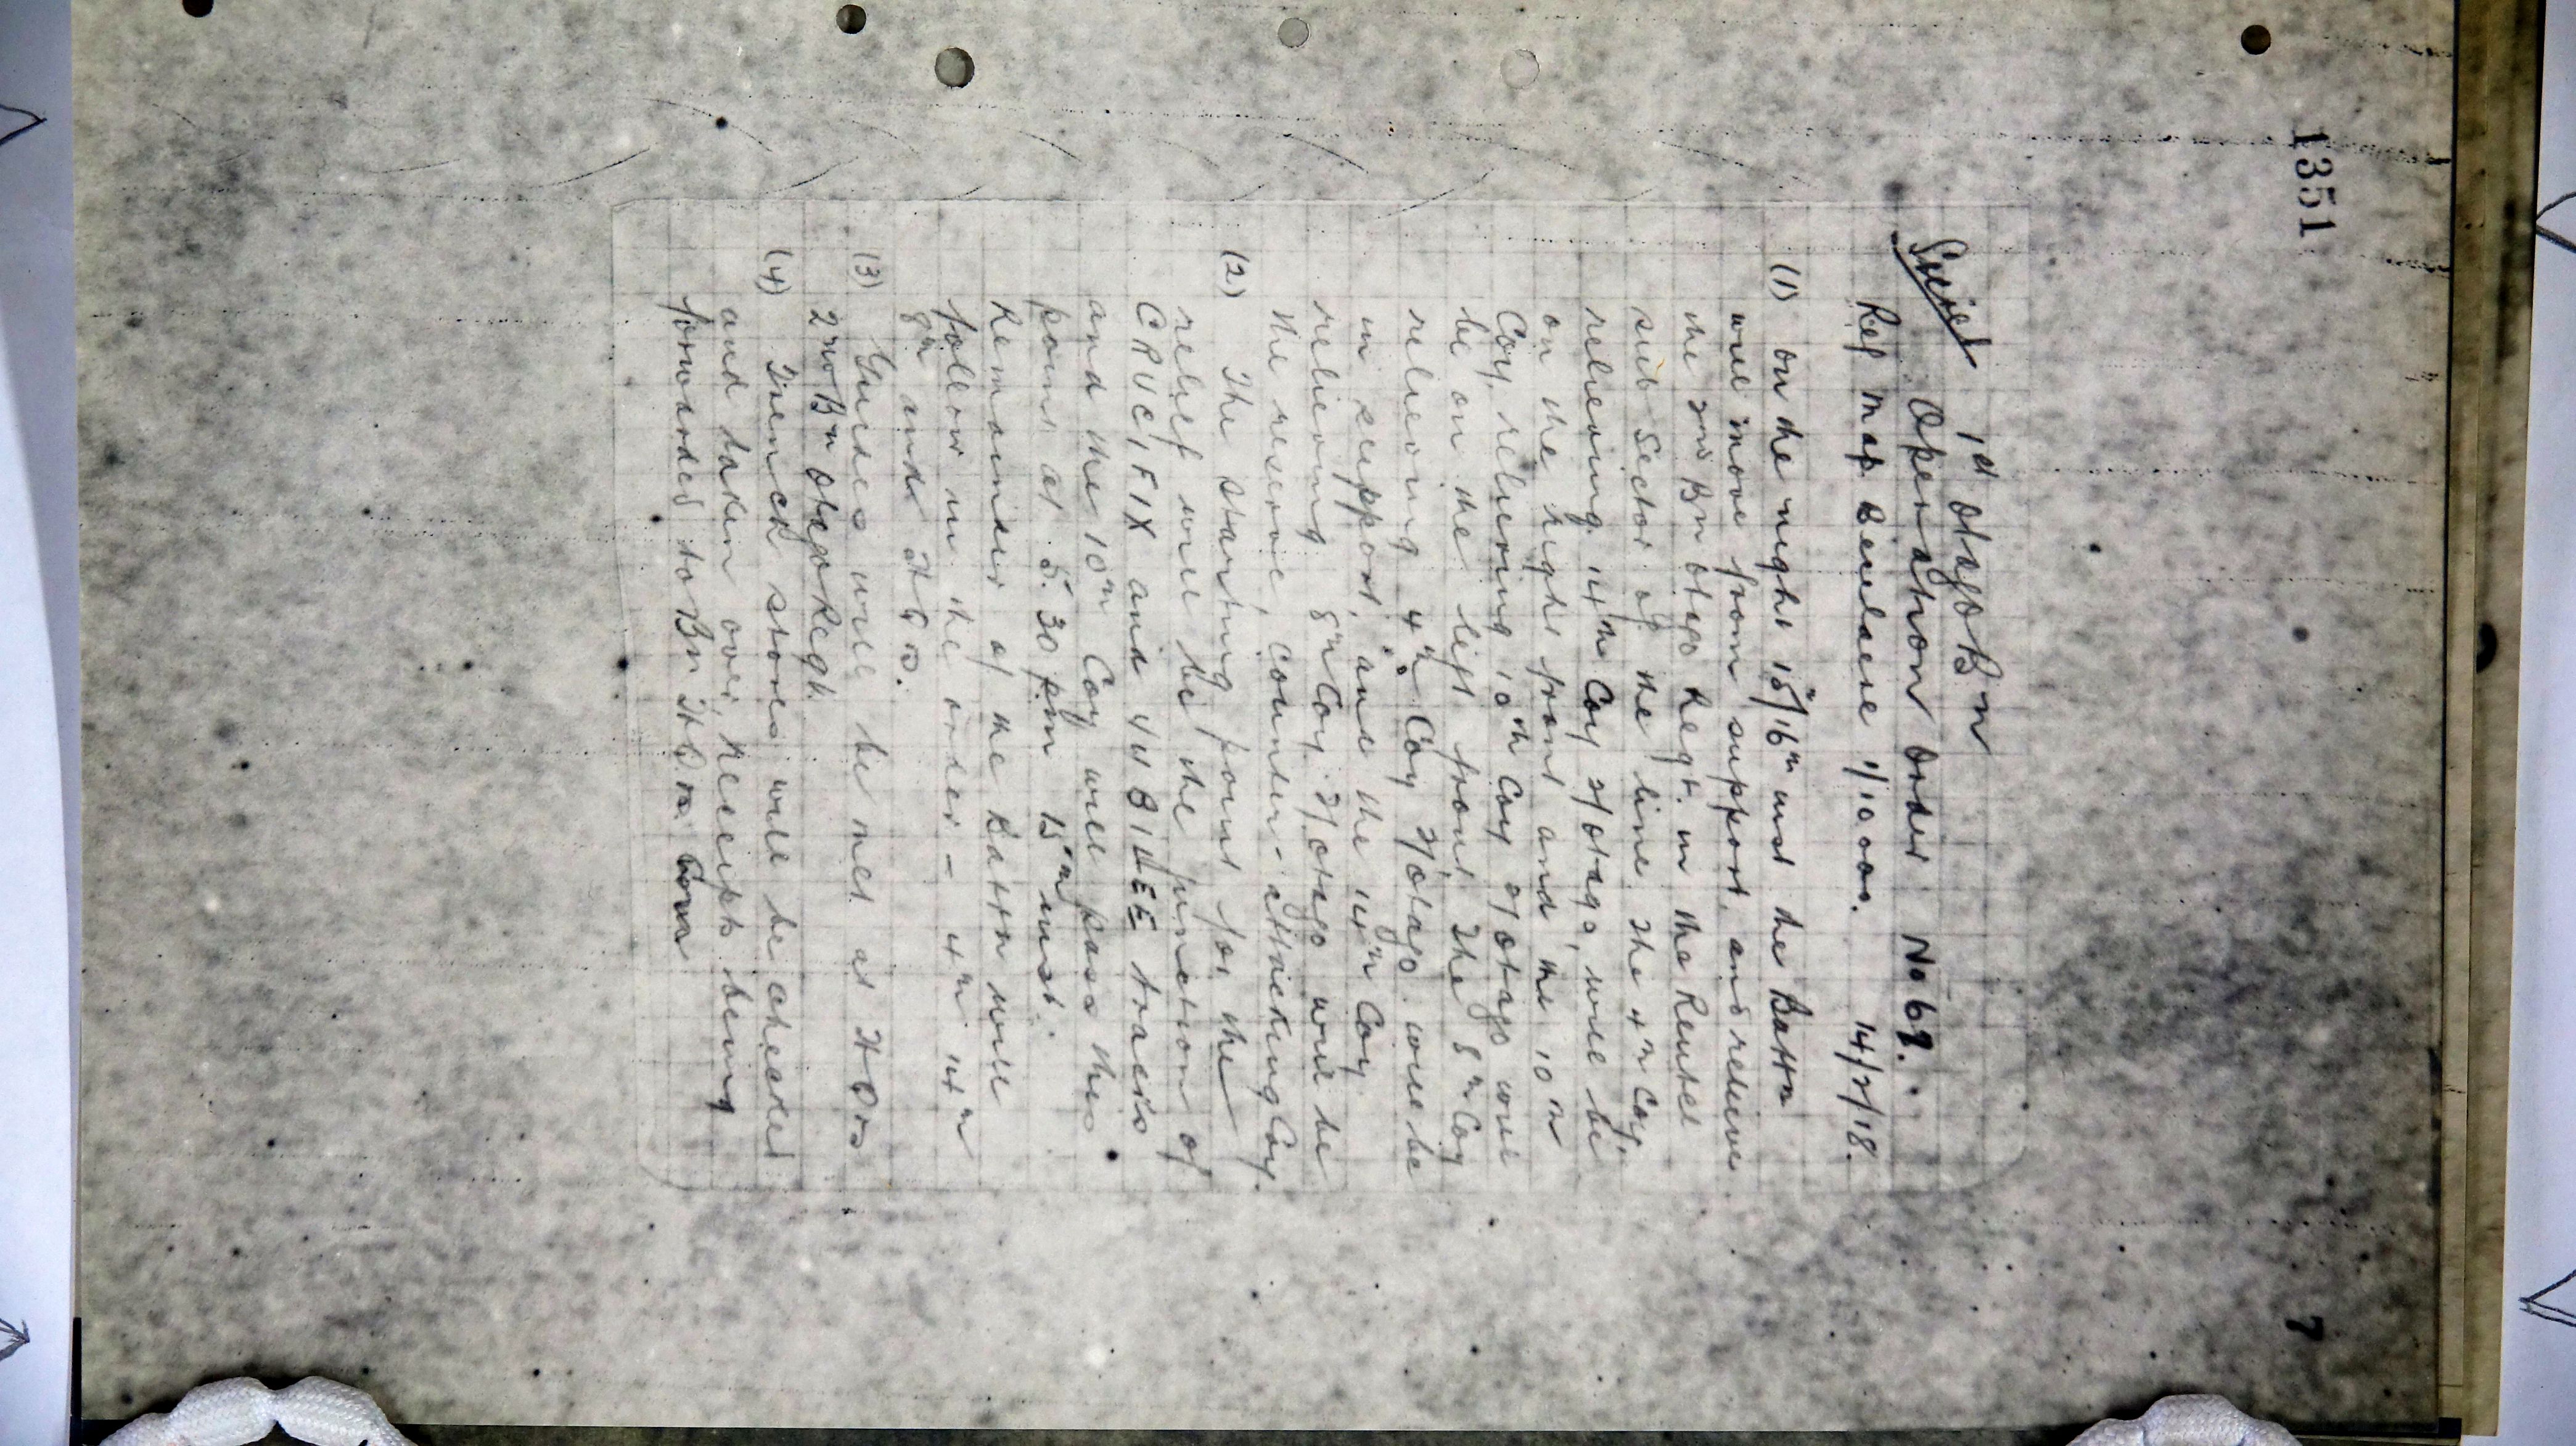 1351
7
Secret
1st Otago Bn
Operation Order No 69.
Ref Map Becelaere 1/10000. 14/2/18.
(1) On the night 15/16th inst the Battn
will move from support and relieve
the 2nd Bn Otago Regt. in the Reutel
sub Sector of the line. The 4th Coy.
relieving 14th Coy 2/Otago, will be
on the right front and the 10th
Coy, relieving 10th Coy 2/Otago will
be on the left front. The 8th Coy
relieving 4th Coy 2/Otago. will be
in support, and the 14th Coy
relieving 8th Coy. 2/Otago will be
the reserve, counter-attacking Coy.
(2) The starting point for the
relief will be the junction of
CRUCIFIX and 4 U BIDEE tracks
and the 10th Coy will pass this
point at 5.30 pm 15th inst.
Remainder of the Battn will
follow in the order - 4th 14th
8th and HQrs.
(3) Guides will be met at HQrs
2nd Bn Otago Regt.
(4) Trench stores will be checked
and taken over, receipts being
forwarded to Bn HQrs